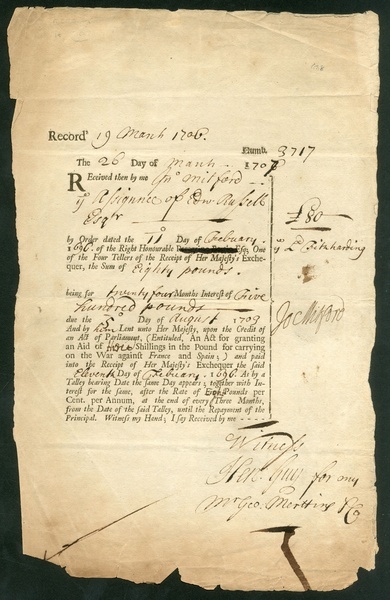 Record' 19 March 1706.
Numb. 3717
The 26 Day of March 1707
REceived then by me Jno Milford
ye Assignee of Edw Russell
Esqr
£80
by Order dated the 11 Day of Febuary
1696. of the Right Honourable Esq; One
ye Ld Fitzharding
of the Four Tellers of the Receipt of Her Majesty's Exche-
quer, the Sum of Eighty pounds.
being for twenty four Months Interest of Five
hundred pounds
Jo Milford
due the 5 Day of August 1709
And by him Lent unto Her Majesty, upon the Credit of
an Act of Parliament, (Entituled, An Act for granting
an Aid of Shillings in the Pound for carrying
on the War against France and Spain;) and paid
into the Receipt of Her Majesty's Exchequer the said
Eleventh Day of Febuary 1696. As by a
Talley bearing Date the same Day appears; together with In-
terest for the same, after the Rate of Eight Pounds per
Cent. per Annum, at the end of every Three Months,
from the Date of the said Talley, until the Repayment of the
Principal. Witness my Hand; I say Received by me
Witness
Hen. Guy for my
Mr Geo. Merttins & Co